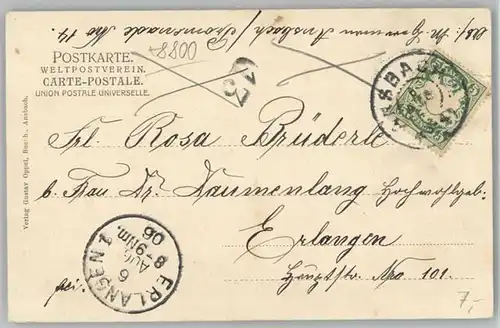 Abs: M. Herrmann Ansbach / Promenade No 14.
POSTKARTE.
WELTPOSTVEREIN.
CARTE-POSTALE.
UNION POSTALE UNIVERSELLE.
8800
13
ANSBACH
5
Frl. Rosa Brüderle
b. Frau Dr. Daumenlang Hochwohlgeb:
Erlangen
Hauptstr. No 101.
frei:
ERLANGEN 1
6
AUG
8-9 Nm.
06
Verlag Gustav Oppel, Buchh., Ansbach.
7,-